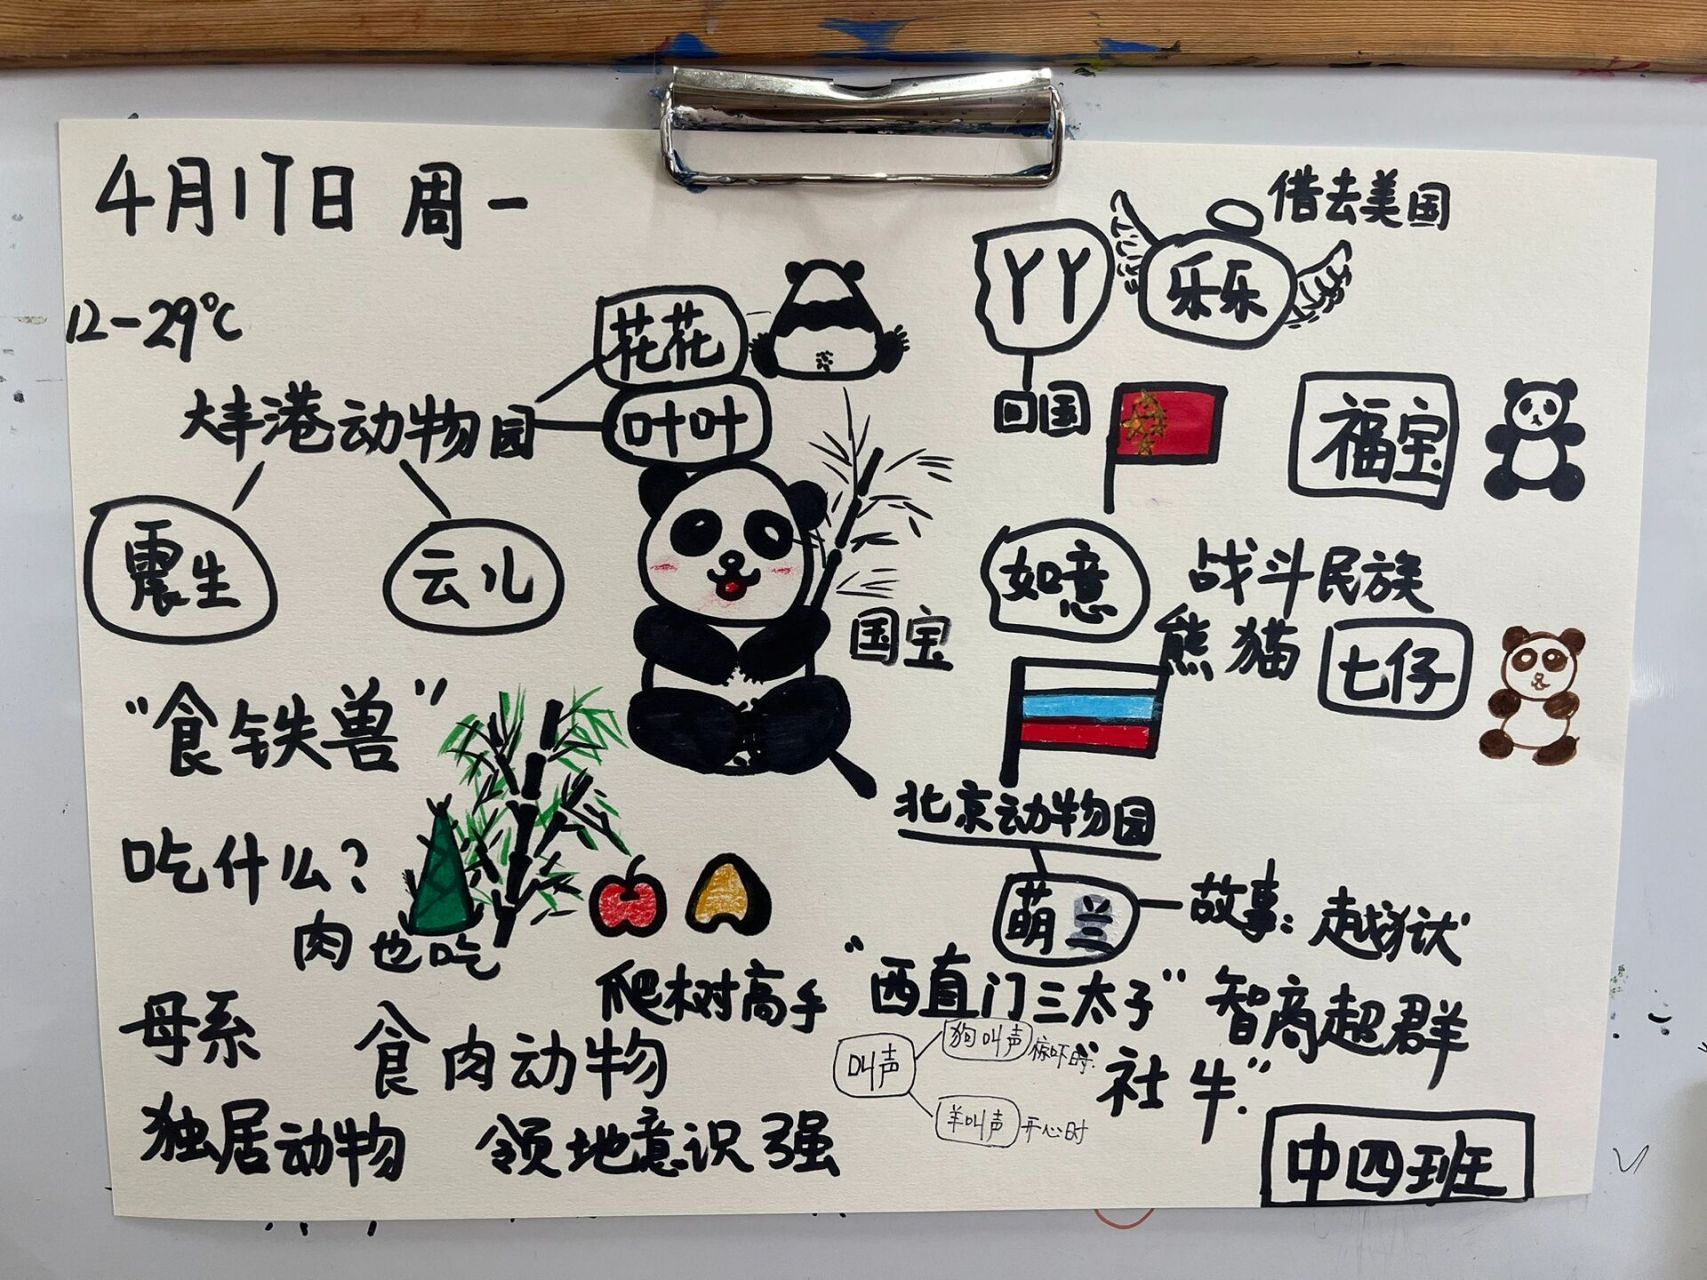 4月17日 周一
12-29℃
大丰港动物园
花花
叶叶
震生
云儿
"食铁兽"
吃什么?
肉也吃
母系
食肉动物
独居动物
领地意识强
爬树高手
国宝
丫丫
乐乐
借去美国
回国
福宝
如意
战斗民族
熊猫
七仔
北京动物园
萌兰
故事:越狱
"西直门三太子"
智商超群
"社牛".
叫声
狗叫声
惊吓时.
羊叫声
开心时
中四班